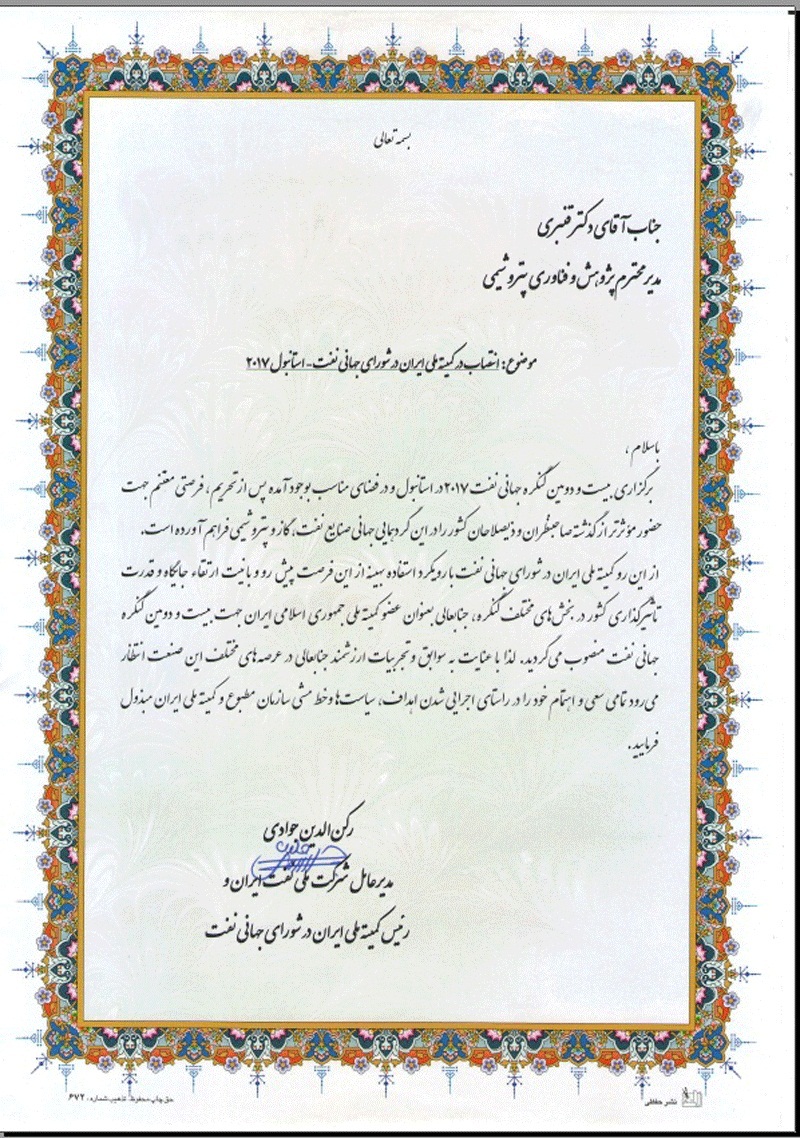 بسمه تعالی
جناب آقای دکتر قنبری
مدیر محترم پژوهش و فناوری پتروشیمی
موضوع: انتصاب در کمیته ملی ایران در شورای جهانی نفت - استانبول ۲۰۱۷
باسلام ،
برگزاری بیست و دومین کنگره جهانی نفت ۲۰۱۷ در استانبول و در فضای مناسب بوجود آمده پس از تحریم، فرصتی مغتنم جهت
حضور مؤثرتر از گذشته صاحبنظران و ذیصلاحان کشور را در این گردهمایی جهانی صنایع نفت، گاز و پتروشیمی فراهم آورده است.
از این رو کمیته ملی ایران در شورای جهانی نفت با رویکرد استفاده بهینه از این فرصت پیش رو و با نیت ارتقاء جایگاه و قدرت
تأثیرگذاری کشور در بخش‌های مختلف کنگره، جنابعالی بعنوان عضو کمیته ملی جمهوری اسلامی ایران جهت بیست و دومین کنگره
جهانی نفت منصوب می‌گردید. لذا با عنایت به سوابق و تجربیات ارزشمند جنابعالی در عرصه‌های مختلف این صنعت انتظار
می‌رود تمامی سعی و اهتمام خود را در راستای اجرایی شدن اهداف، سیاست‌ها و خط مشی سازمان مطبوع و کمیته ملی ایران مبذول
فرمایید.
رکن‌الدین جوادی
مدیر عامل شرکت ملی نفت ایران و
رئیس کمیته ملی ایران در شورای جهانی نفت
حق چاپ محفوظ. تذهیب شماره: ۶۷۲
نشر حققی